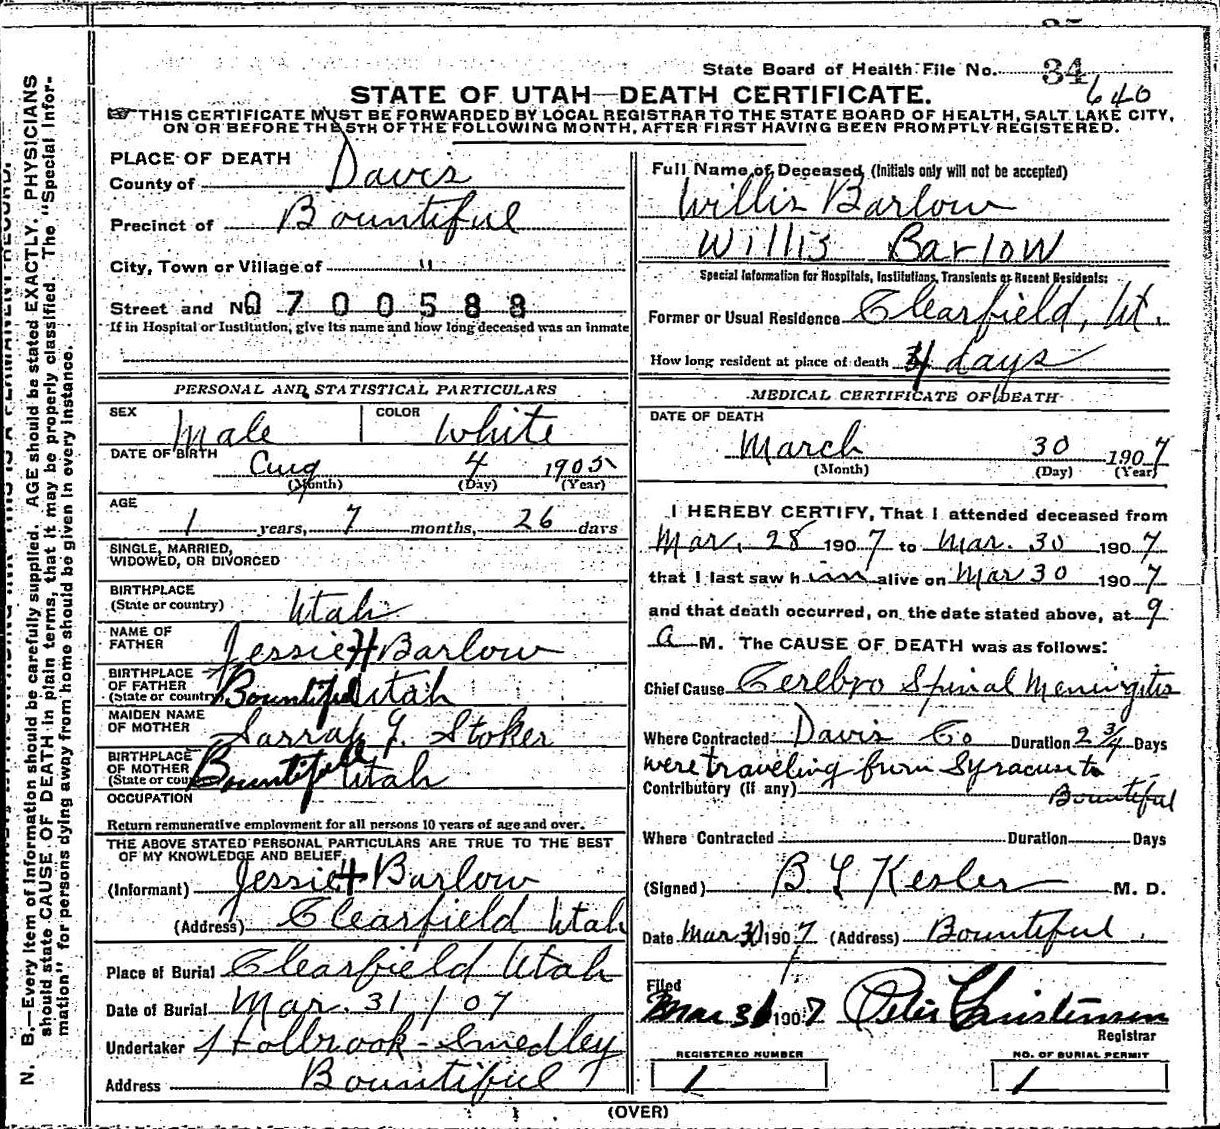 State Board of Health File No. 34
640
STATE OF UTAH—DEATH CERTIFICATE.
THIS CERTIFICATE MUST BE FORWARDED BY LOCAL REGISTRAR TO THE STATE BOARD OF HEALTH, SALT LAKE CITY,
ON OR BEFORE THE 5TH OF THE FOLLOWING MONTH, AFTER FIRST HAVING BEEN PROMPTLY REGISTERED.
PLACE OF DEATH
County of Davis
Precinct of Bountiful
City, Town or Village of "
Street and No. 0700588
If in Hospital or Institution, give its name and how long deceased was an inmate
PERSONAL AND STATISTICAL PARTICULARS
SEX Male COLOR White
DATE OF BIRTH Aug 4 1905
(Month) (Day) (Year)
AGE
1 years, 7 months, 26 days
SINGLE, MARRIED,
WIDOWED, OR DIVORCED
BIRTHPLACE
(State or country) Utah
NAME OF
FATHER Jessie H Barlow
BIRTHPLACE
OF FATHER
(State or country) Bountiful Utah
MAIDEN NAME
OF MOTHER Sarrah J. Stoker
BIRTHPLACE
OF MOTHER
(State or cou Bountifull Utah
OCCUPATION
Return remunerative employment for all persons 10 years of age and over.
THE ABOVE STATED PERSONAL PARTICULARS ARE TRUE TO THE BEST
OF MY KNOWLEDGE AND BELIEF
(Informant) Jessie H Barlow
(Address) Clearfield Utah
Place of Burial Clearfield Utah
Date of Burial Mar. 31/07
Undertaker Holbrook-Smedley
Address Bountiful
Full Name of Deceased (Initials only will not be accepted)
Willis Barlow
Willis Barlow
Special Information for Hospitals, Institutions, Transients or Recent Residents:
Former or Usual Residence Clearfield, Ut.
How long resident at place of death 4 days
MEDICAL CERTIFICATE OF DEATH
DATE OF DEATH
March 30 1907
(Month) (Day) (Year)
I HEREBY CERTIFY, That I attended deceased from
Mar. 28 1907 to Mar. 30 1907
that I last saw him alive on Mar 30 1907
and that death occurred, on the date stated above, at 9
a M. The CAUSE OF DEATH was as follows:
Chief Cause Cerebro Spinal Meningitis
Where Contracted Davis Co Duration 2 3/4 Days
were traveling from Syracuse to
Contributory (if any) Bountiful
Where Contracted Duration Days
(Signed) B L Kesler M. D.
Date Mar 30 1907 (Address) Bountiful.
Filed
Mar 31 1907 Peter Christensen
Registrar
REGISTERED NUMBER
1
NO. OF BURIAL PERMIT
1
(OVER)
N. B.—Every item of information should be carefully supplied. AGE should be stated EXACTLY. PHYSICIANS
should state CAUSE OF DEATH in plain terms, that it may be properly classified. The "Special Infor-
mation" for persons dying away from home should be given in every instance.